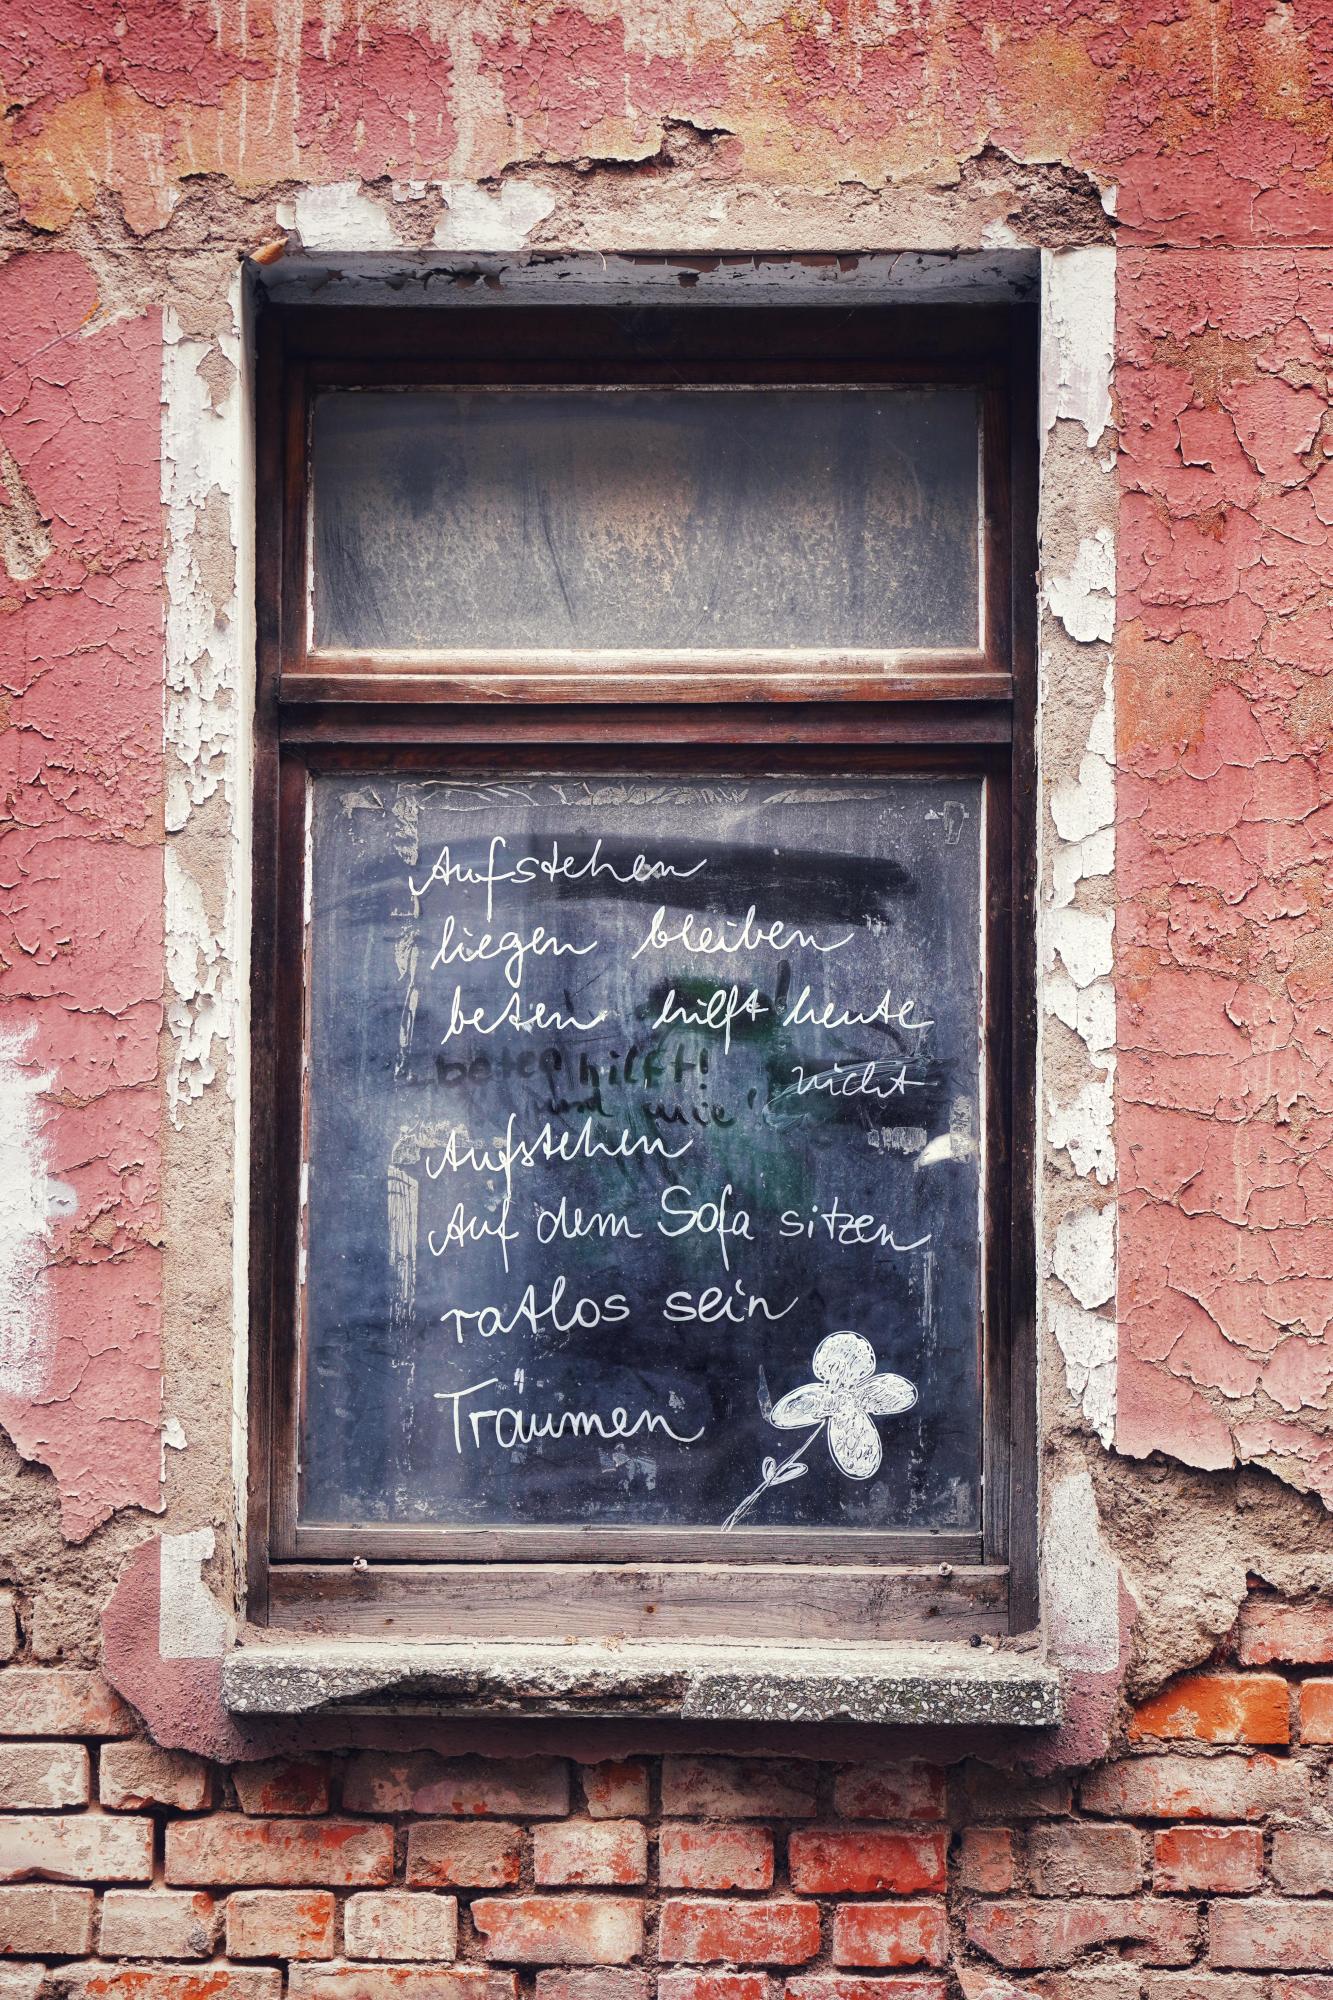 Aufstehen
liegen bleiben
beten hilft heute
beten hilft!
nicht
und
Aufstehen
Auf dem Sofa sitzen
ratlos sein
Träumen